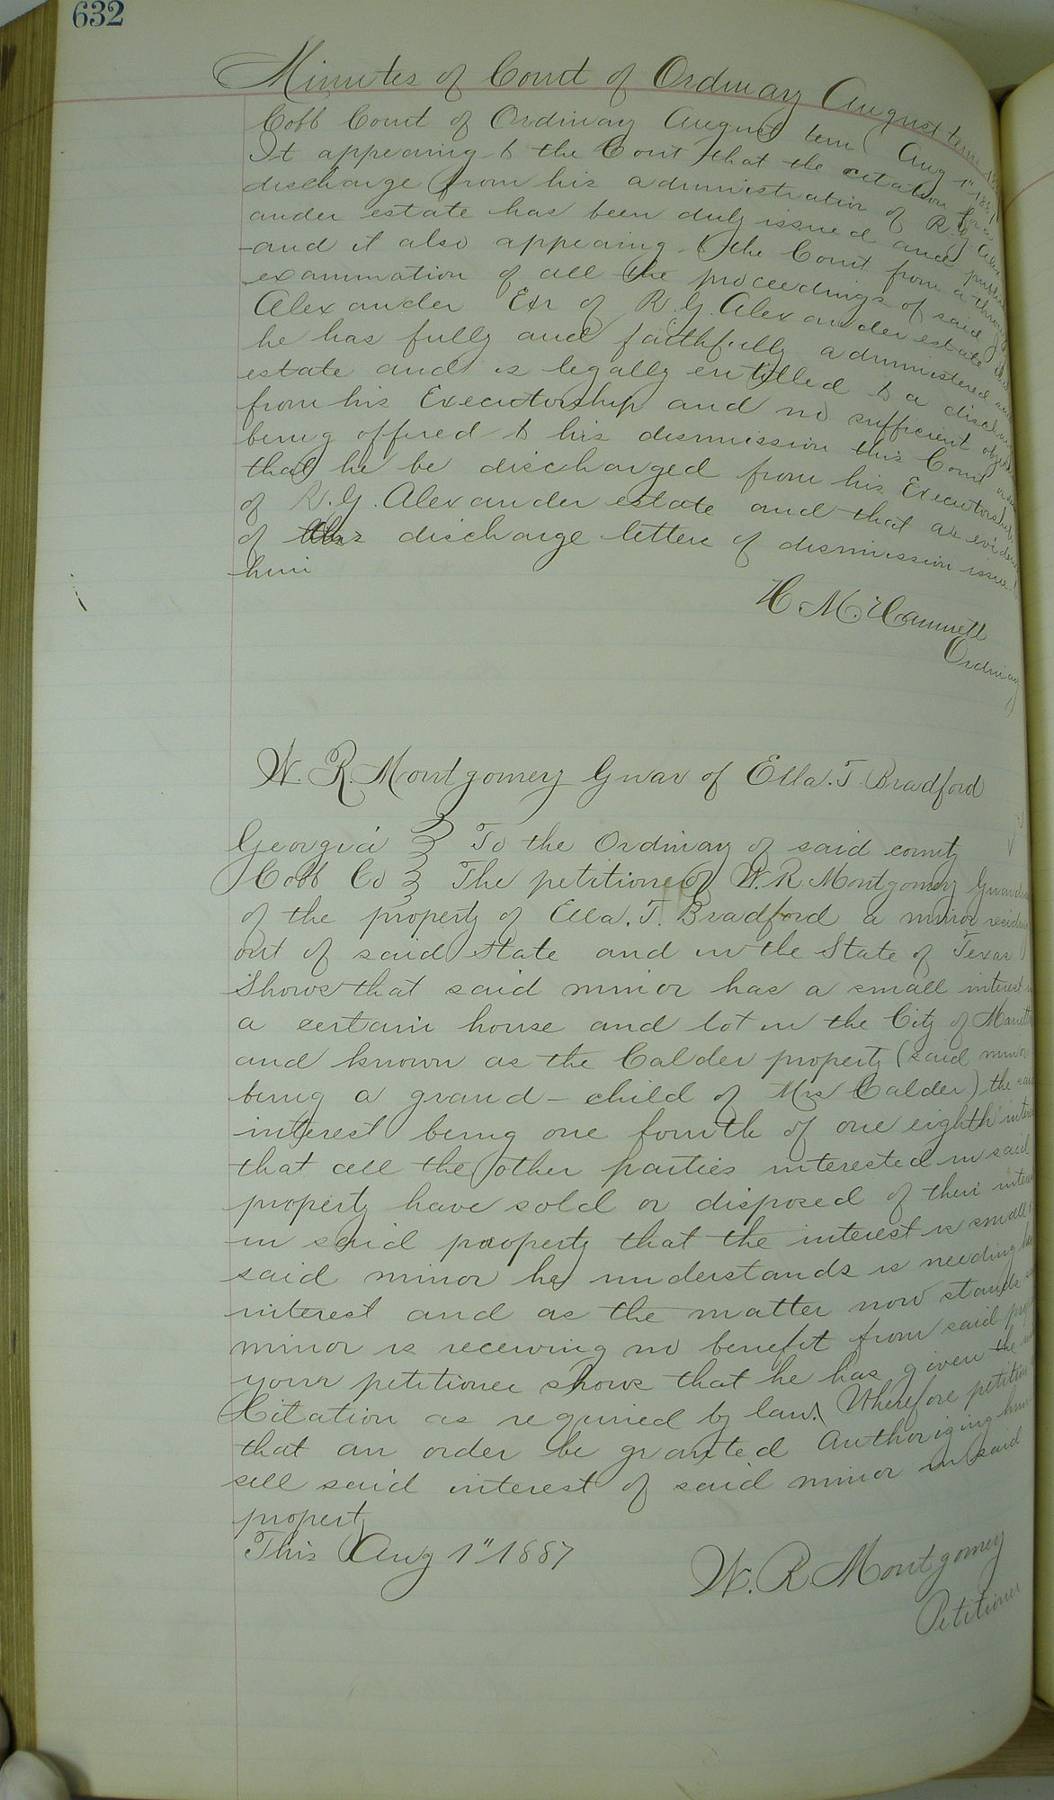 632
Minutes of Court of Ordinary August term
Cobb Court of Ordinary August term Aug 1" 1887
It appearing to the Court that the citation for
discharge from his administration of R. G. Alex
ander estate has been duly issued and publis
and it also appearing to the Court from a thorough
examination of all the proceedings of said
Alexander Exr of R. G. Alexander estate that
he has fully and faithfully administered said
estate and is legally entitled to a discharge
from his Executorship and no sufficient objec
being offered to his dismission this Court orders
that he be discharged from his Executorship
of R. G. Alexander estate and that as evidence
of his discharge letters of dismission issue to
him
H. M. Hammett
Ordinary
W. R. Montgomery Guar of Ella. T. Bradford
Georgia } To the Ordinary of said county
Cobb Co } The petitione of W. R Montgomery Guardian
of the property of Ella. T. Bradford a minor residing
out of said State and in the State of Texas
Shows that said minor has a small interest in
a certain house and lot in the City of Marietta
and known as the Calder property (said minor
being a grand-child of Mrs Calder) the said
interest being one fourth of one eighth interest
that all the other parties interested in said
property have sold or disposed of their interest
in said property that the interest is small
said minor he understands is needing
interest and as the matter now stands
minor is receiving no benefit from said prop
your petitioner shows that he has given the
Citation as required by law. Wherefore petitioner
that an order be granted Authorizing him
sell said interest of said minor in said
property
This Aug 1" 1887
W. R Montgomery
Petitioner